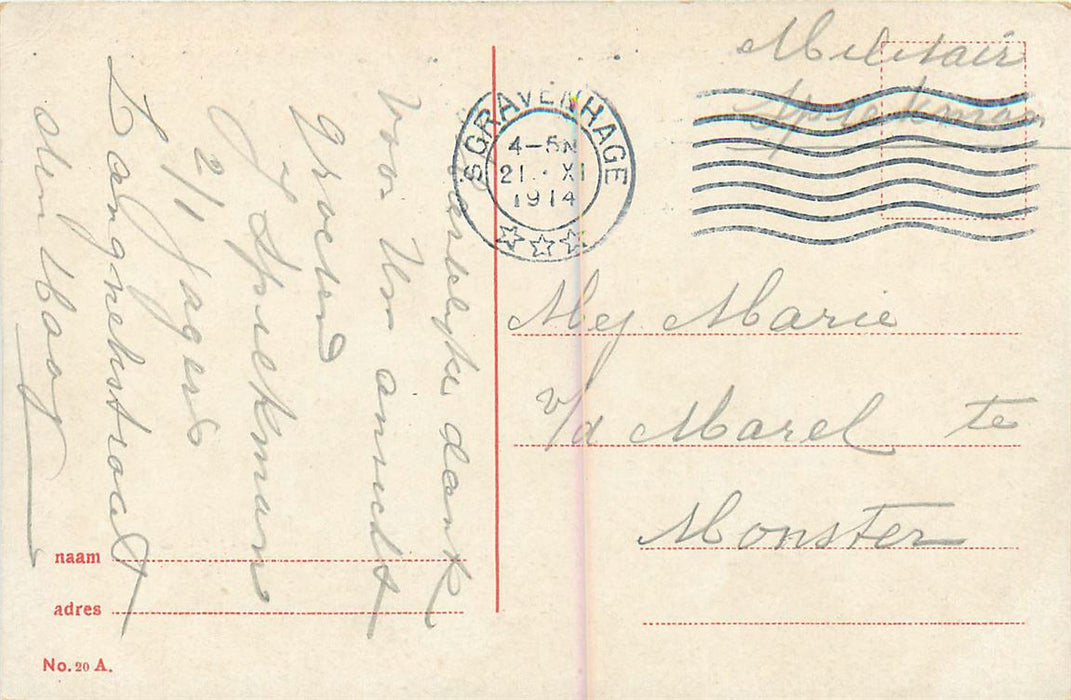 Hartelyke dank
voor Uw ansicht
groeten
J Spiekman
2/1 Jagers
den Haag
'S GRAVENHAGE
4-5N
21. XI
1914
Militair
Spiekman
Mej Marie
v/d Marel te
Monster
naam
adres
No. 20 A.